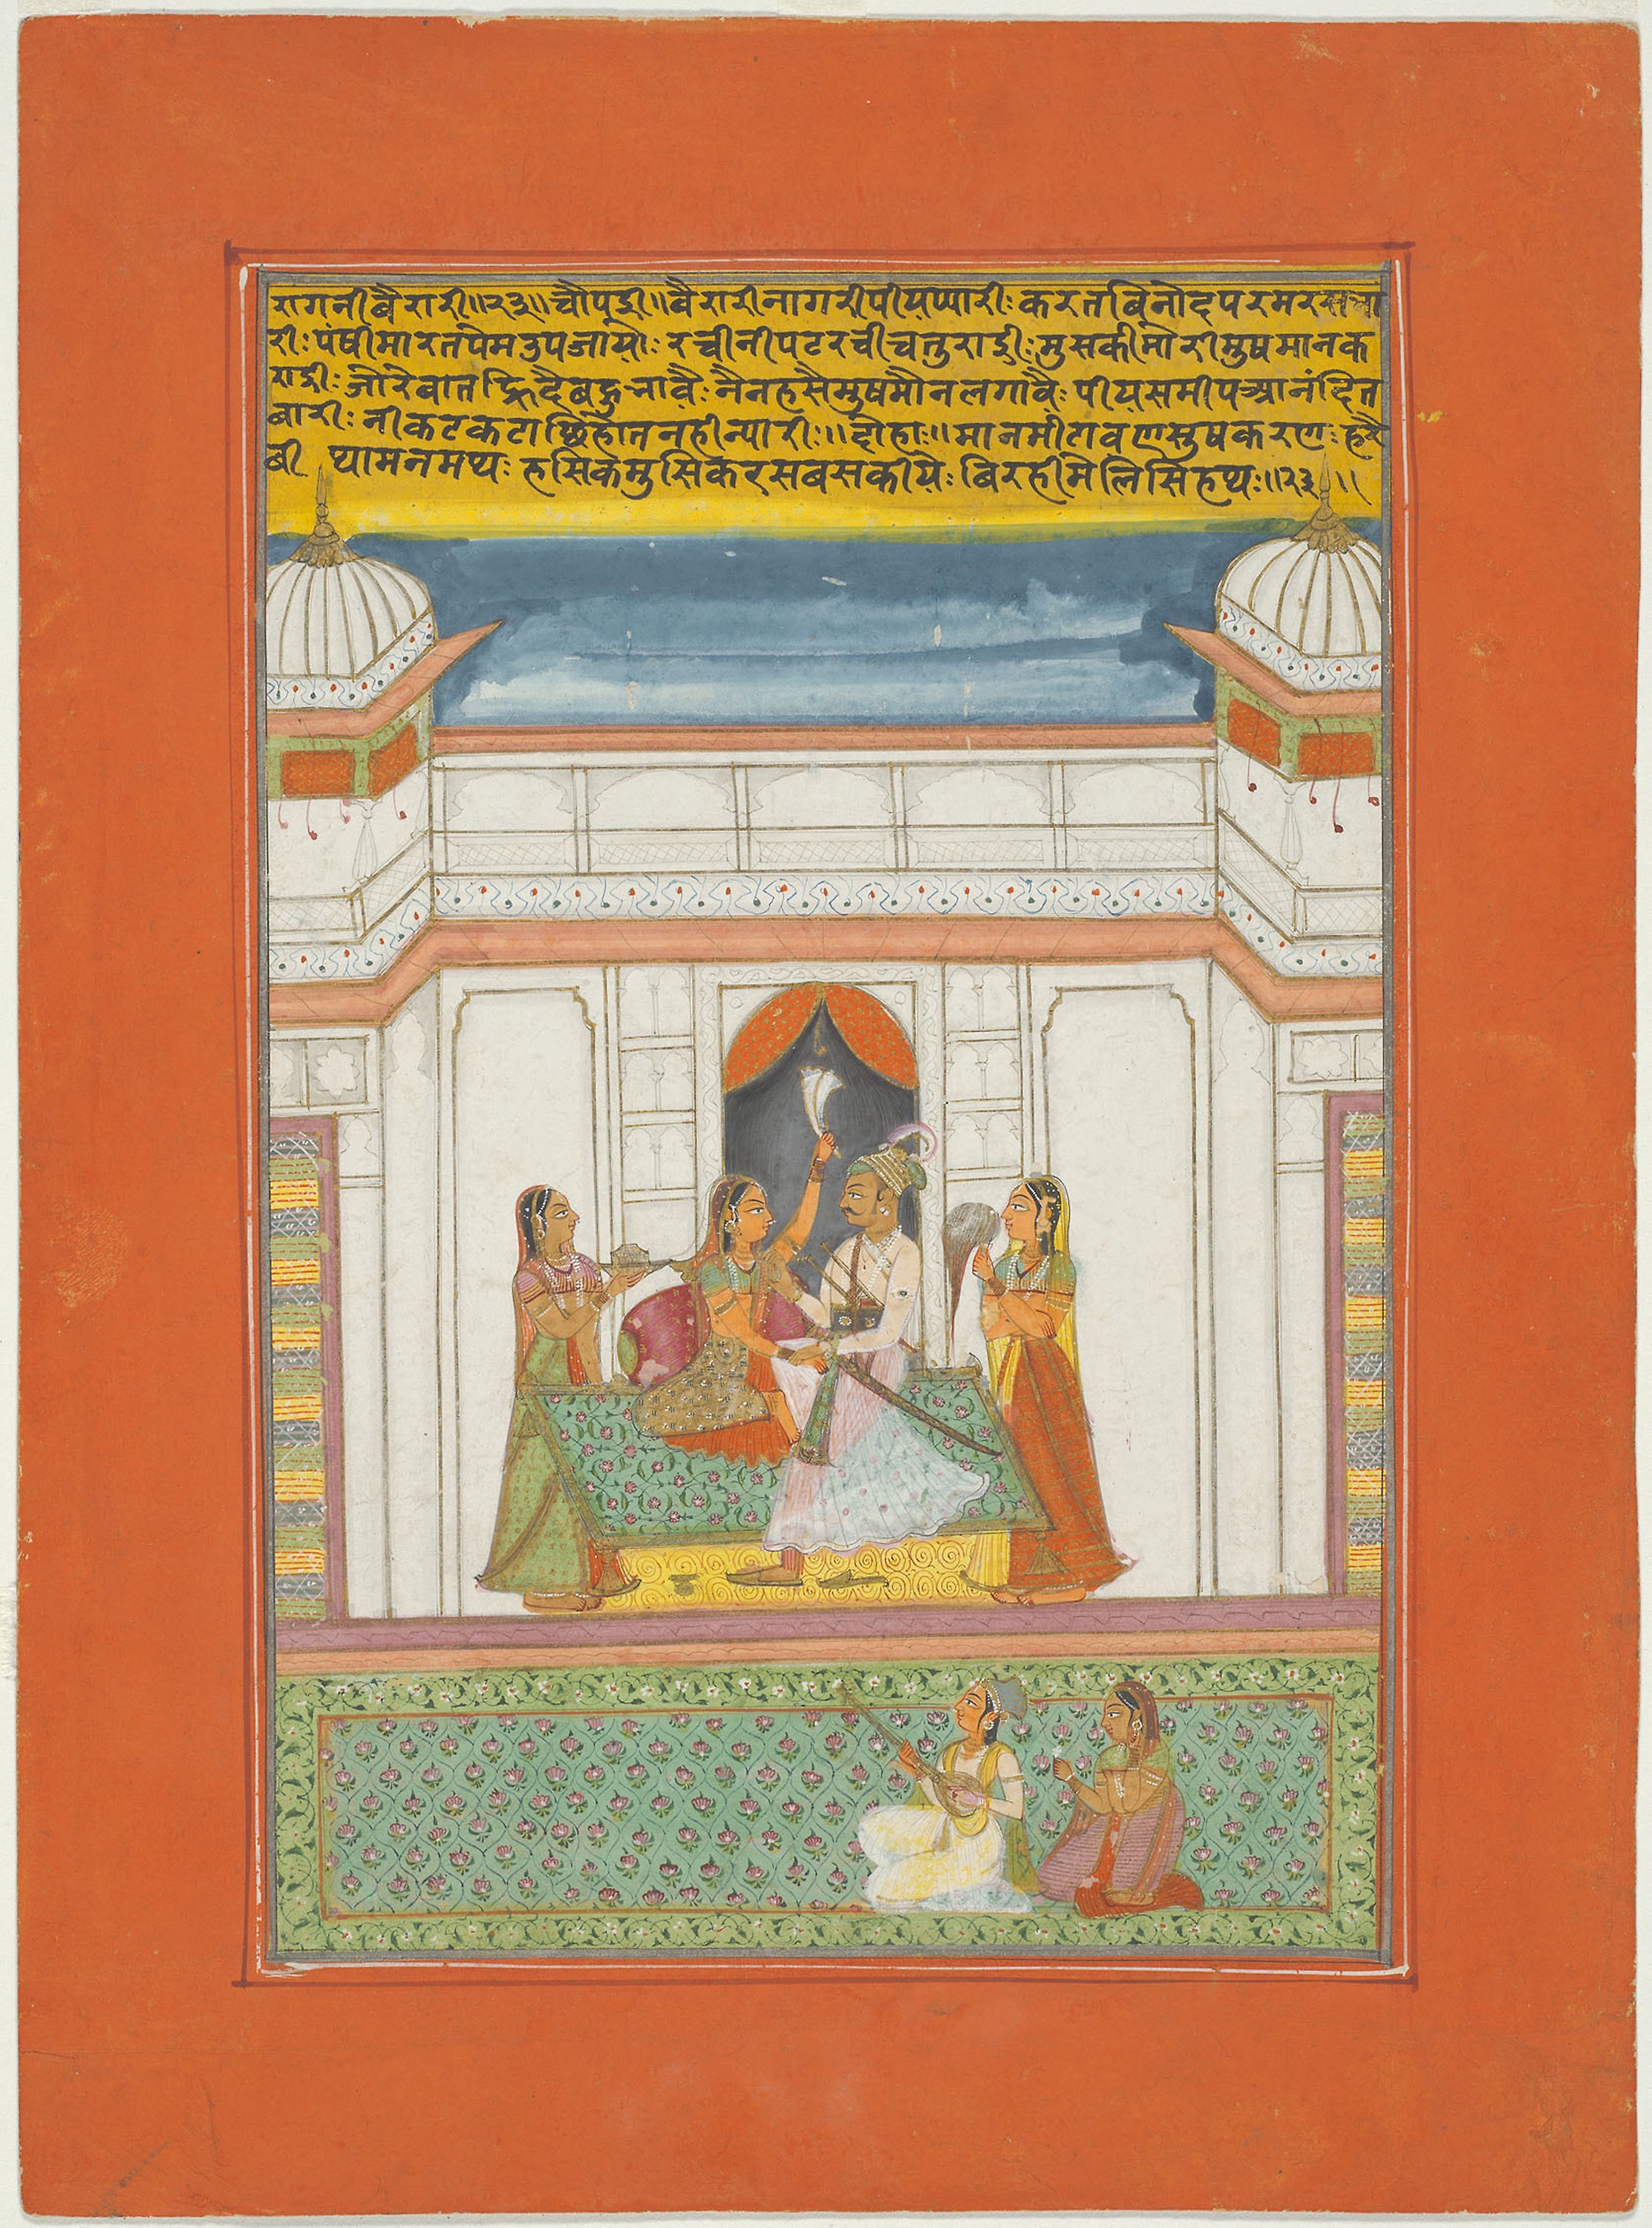 रागनी बैरारी॥२३॥ चौपई॥ बैरारी नागरी पीय प्यारीः करत बिनोद परम
रीः पंषी मारत पेम उपजायौः रची नीपट रची चतुराईः मुसकी मोरी मुष मान क
राईः जोरै बात द्रिदै बहु भावैः नैन हसै मुष मौन लगावैः पीय समीप आनंदित
बारीः नीकट कटाछि होत नही न्यारीः॥ दोहाः॥ मान मीटावण सुष करणः हरै
बी था मनमथः हसिक मुसिक रस बस कीयैः बिरही मेलि सि हथः॥२३॥